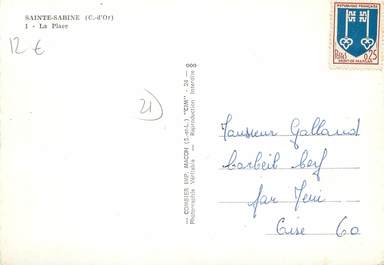 SAINTE-SABINE (C.-d'Or)
1 - La Place
12 €
21
REPUBLIQUE FRANÇAISE
0,25
MONT-DE-MARSAN
COMBIER IMP. MACON (S.-et-L.) "CIM"
Photographie Véritable — Reproduction Interdite
Monsieur Galland
Corbeil Cerf
par
Oise 60